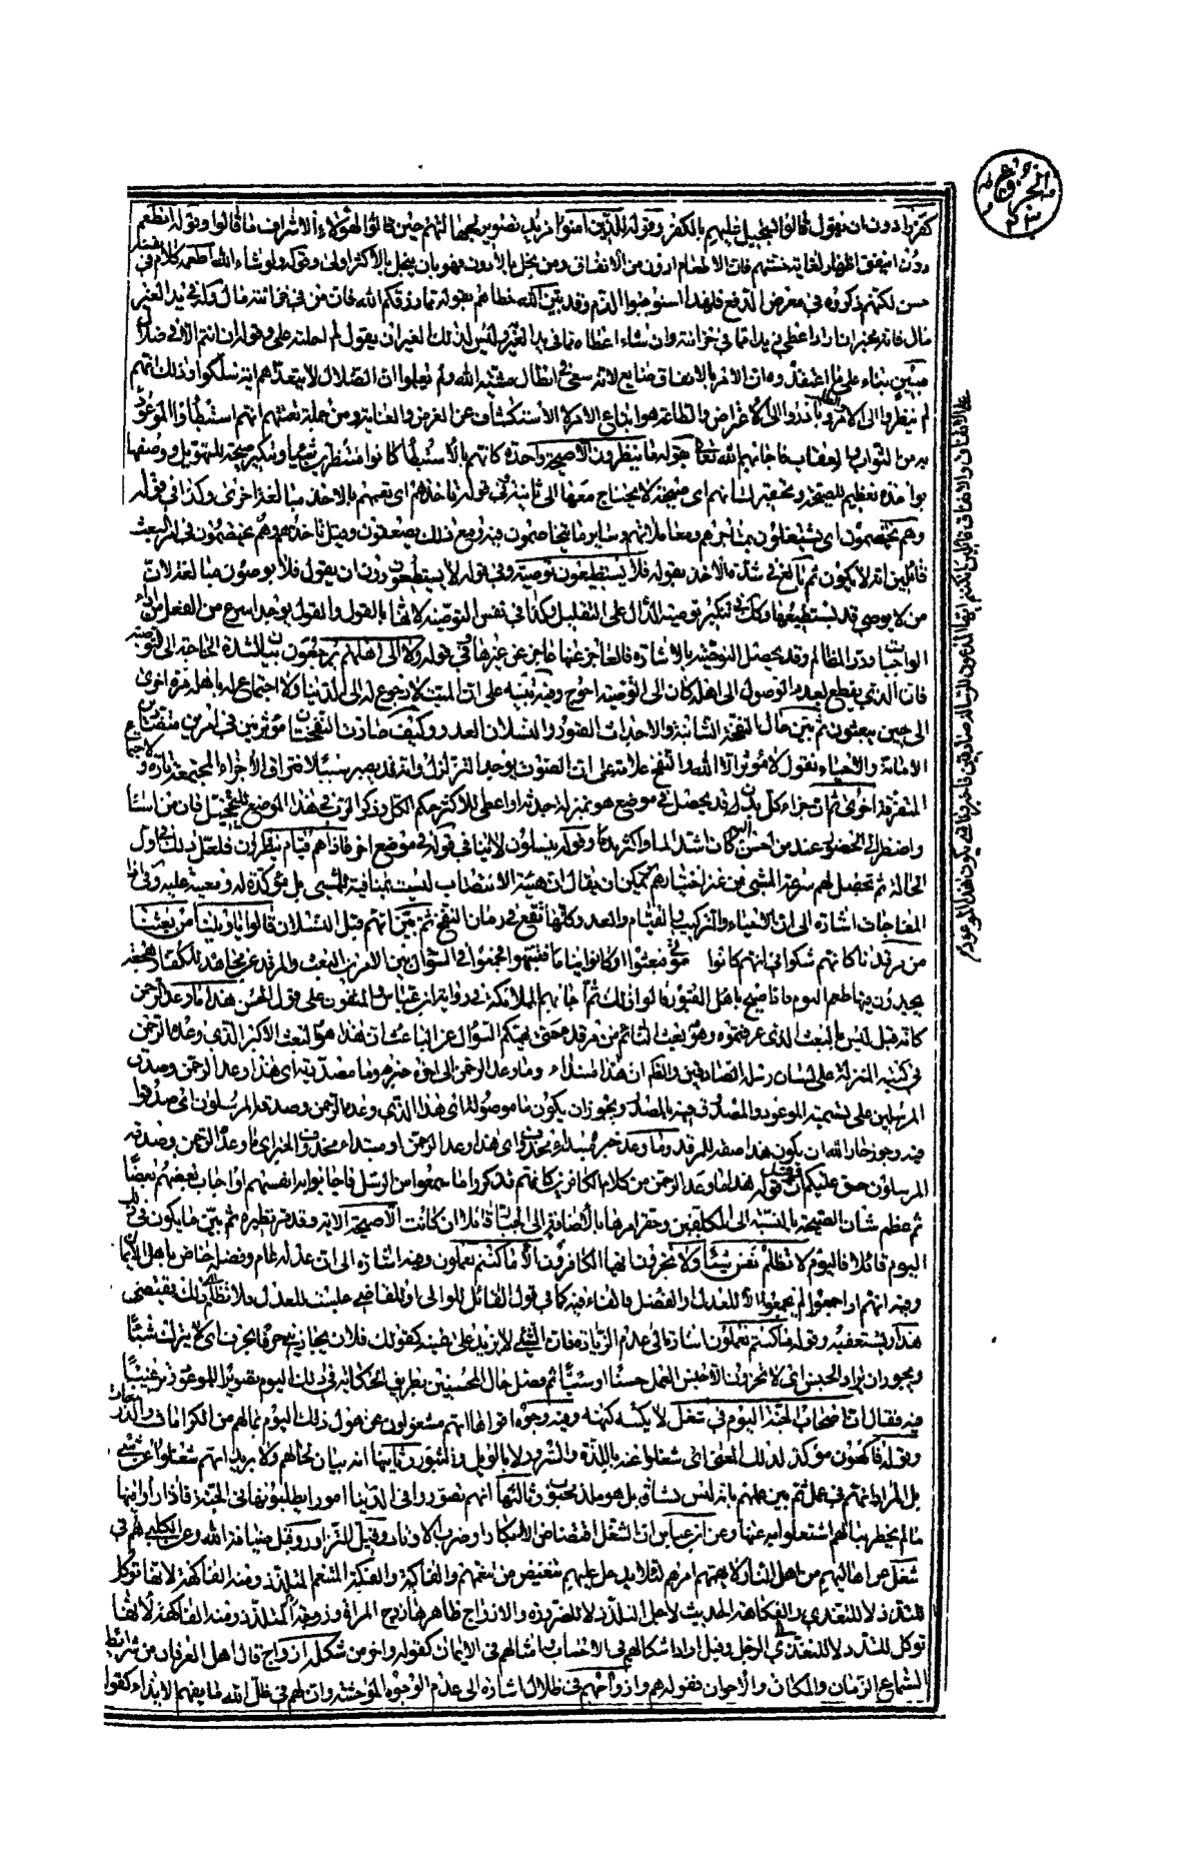 الجزء ٢٣
كفروا دون ان يقول قالوا لتسجيل عليهم بالكفر وقوله للذين امنوا مزيد تصوير بجهالتهم حين قالوا لهؤلاء الاشراف ما قالوا وقوله انطعم
دون انفق اظهار لغاية خستهم فان الاطعام ادون من الانفاق ومن بخل بالادون فهو بان يبخل بالاكثر اولى وقوله من لو يشاء الله اطعمه كلام في نفسه
حسن لكنهم ذكروه في معرض الدفع فلهذا استوجبوا الذم وقد بين الله خطاهم بقوله مما رزقكم الله فان من في خزائنه مال وله في يد الغير
مال فانه مخير ان اراد اعطى زيدا مما في خزائنه وان شاء اعطاه مما في يد الغير وليس لذلك الغير ان يقول لم احلته علي وقوله ان انتم الا في ضلال
مبين بناء على ما اعتقدوه ان الامر بالانفاق ضايع لانه سعي في ابطال مشية الله ولم يعلموا ان الضلال لا يتعداهم اية سلكوا وذلك انهم
لم ينظروا الى الامر والطلب وبادروا الى الاعتراض والطاعة هو اتباع الامر لا الاستكشاف عن الغرض والغاية ومن جملة تعنتهم انهم استبطأوا الموعود
به من الثواب والعقاب فاجابهم الله تعالى بقوله ما ينظرون الا صيحة واحدة كانهم بالاستبطاء كانوا منتظرين شيئا وتنكير صيحة للتهويل ووصفها
بواحدة تعظيم للصيحة وتحقير لشانهم اي صيحة لا يحتاج معها الى ثانية وفي قوله تاخذهم اي تعمهم بالاخذ مبالغة اخرى وكذا في قوله
وهم يخصمون اي يشتغلون بمتاجرهم ومعاملاتهم وساير ما يتخاصمون فيه ومع ذلك يصعقون وقيل تاخذهم وهم يختصمون في امر البعث
قائلين انه لا يكون ثم بالغ في شدة الاخذ بقوله فلا يستطيعون توصية وفي قوله لا يستطيعون دون ان يقول فلا يوصون مبالغة لان
من لا يوصي قد يستطيعها وكذلك في تنكير توصية الدال على التقليل وكذا في نفس التوصية لانها بالقول والقول يوجد اسرع من الفعل من اداء
الواجبات ورد المظالم وقد يحصل التوصية بالاشارة فالعاجز عنها عاجز عن غيرها وفي قوله ولا الى اهلهم يرجعون بيان لشدة الحاجة الى التوصية
فان الذي يقطع بعدم الوصول الى اهله كان الى التوصية احوج وفيه تنبيه على ان الميت لا رجوع له الى الدنيا ولا اجتماع له باهله مرة اخرى
الى حين يبعثون ثم بين حال النفخة الثانية والاجداث القبور والنسلان العدو وكيف صارت النفختان مؤثرتين في امرين متضادين
الاماتة والاحياء نقول لا مؤثر الا الله والنفخ علامة على ان الصوت يوجد التزلزل وانه قد يصير سببا لافتراق الاجزاء المجتمعة تارة ولاجتماع
المتفرقة اخرى ثم ان اجزاء كل بدن قد يحصل في موضع هو بمنزلة جدثه او اعطى للاكثر حكم الكل وذكر الرب في هذا الموضع للتخجيل فان من اساء
واضطر الى الحضور عند من احسن اليه كان اشد الما واكثر ندما وقوله ينسلون لا ينافي قوله في موضع اخر فاذا هم قيام ينظرون فلعل ذلك في اول
الحالة ثم تحصل لهم سرعة المشي من غير اختيارهم ويمكن ان يقال ان هيئة الانتصاب ليست بمنافية للمشي بل مؤكدة له ومعينة عليه وفي اذا
المفاجات اشارة الى ان الاحياء والتركيب والقيام والعدو كلها تقع في زمان النفخ ثم بين انهم قبل النسلان قالوا يا ويلنا من بعثنا
من مرقدنا كانهم شكوا في انهم كانوا موتى فبعثوا او كانوا نياما فنبهوا فجمعوا في السؤال بين الامرين البعث والمرقد عن مجاهد للكفار هجعة
يجدون فيها طعم النوم فاذا صيح باهل القبور قالوا ذلك ثم اجابهم الملائكة في رواية ابن عباس والمتقون على قول الحسن هذا ما وعد الرحمن
كانه قيل ليس بالبعث الذي عرفتموه وهو بعث النائم من مرقده حتى يهمكم السؤال عن الباعث ان هذا هو البعث الاكبر الذي وعده الرحمن
في كتبه المنزلة على لسان رسله الصادقين واعلم ان هذا مبتداء وما وعد الرحمن الى اخره خبره وما مصدرية اي هذا وعد الرحمن وصدق
المرسلين على تسمية الموعود والمصدق فيه بالمصدر ويجوز ان يكون ما موصولة اي هذا الذي وعده الرحمن وصدقه المرسلون اي صدقوا
فيه وجوز جار الله ان يكون هذا صفة للمرقد وما وعد خبر مبتداء محذوف اي هذا وعد الرحمن او مبتداء محذوف الخبر اي ما وعد الرحمن وصدقه
المرسلون حق عليكم وقيل ان قوله هذا ما وعد الرحمن من كلام الكافرين كانهم تذكروا ما سمعوا من الرسل فاجابوا به انفسهم او اجاب بعضهم بعضا
ثم عظم شان الصيحة بالنسبة الى المكلفين وحقر امرها بالاضافة الى الجبار قائلا ان كانت الا صيحة الاية وقد مر نظيره ثم بين ما يكون في ذلك
اليوم قائلا فاليوم لا تظلم نفس شيئا ولا تجزون ايها الكافرون الا ما كنتم تعملون وفيه اشارة الى ان عدله عام وفضله خاص باهل الايمان
وفيه انهم اذا جمعوا لم يجمعوا الا للعدل او الفضل فالفاء فيه كما في قول القائل للوالي او للقاضي جلست للعدل فلا تظلم اي ذلك يقتضي
هذا ويستعقبه وقوله ما كنتم تعملون اشارة الى عدم الزيادة فان الشيء لا يزيد على عينه كقولك فلان يجازيني حرفا بحرف اي لا يترك شيئا
ويجوز ان يراد الجنس اي لا تجزون الا جنس العمل حسنا او سيئا ثم فصل حال المحسنين بطريق الحكاية في ذلك اليوم تصويرا للموعود وترغيبا
فيه فقال ان اصحاب الجنة اليوم في شغل لا يكتنه كنهه وفيه وجوه اقواها انهم مشغولون عن هول ذلك اليوم بما لهم من الكرامات والدرجات
وقوله فاكهون مؤكد لذلك المعنى اي شغلوا عنه باللذة والسرور لا بالويل والثبور وثانيها انه بيان لحالهم ولا يريد انهم شغلوا عن شيء
بل المراد انهم في عمل ثم بين عملهم بانه ليس بشاق بل هو ملذ محبوب وثالثها انهم تصوروا في الدنيا امورا يطلبونها في الجنة فاذا راوا فيها
ما لم يخطر ببالهم اشتغلوا به عنها وعن ابن عباس ان الشغل افتضاض الابكار او ضرب الاوتار وقيل التزاور وقيل ضيافة الله وعن الكلبي هم في
شغل عن اهاليهم من اهل النار لا يهمهم امرهم لئلا يدخل عليهم تنغيص من تنعمهم والفاكه والفكه المتنعم المتلذذ ومنه الفاكهة لانها تؤكل
للتلذذ لا للتغذي والفكاهة الحديث لاجل التلذذ لا للضرورة والازواج ظاهرها زوج المراة وزوجة
توكل للتلذذ لا للتغذي الرجل وقيل اراد اشكالهم في الاحساب وامثالهم في الايمان كقوله واخر من شكله ازواج قال اهل العرفان من شرائط
السماع الزمان والمكان والاخوان فقوله هم وازواجهم في ظلال اشارة الى عدم الوجوه الموحشة وان لهم في ظل الله ما يغنيهم الابتداء كقوله